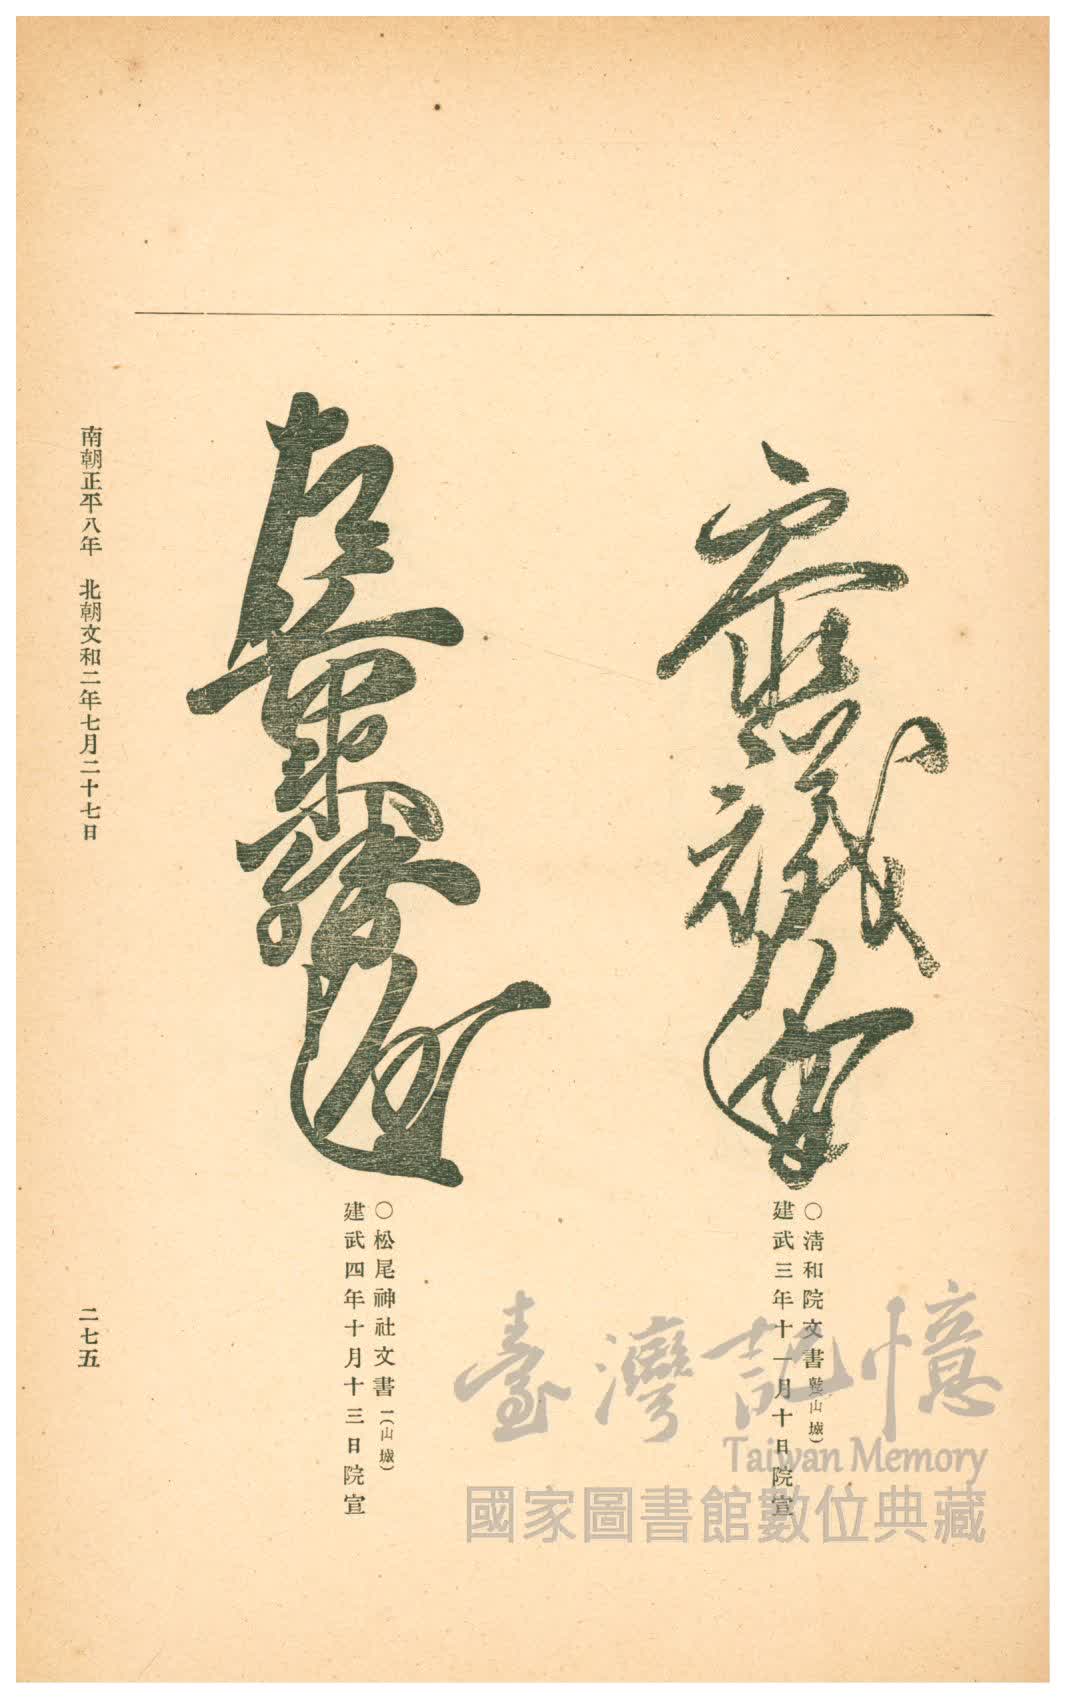 ○清和院文書 山城)
建武三年十一月十日院宣
○松尾神社文書一(山城)
建武四年十月十三日院宣
南朝正平八年 北朝文和二年七月二十七日
二七五
臺灣記憶
Taiwan Memory
國家圖書館數位典藏